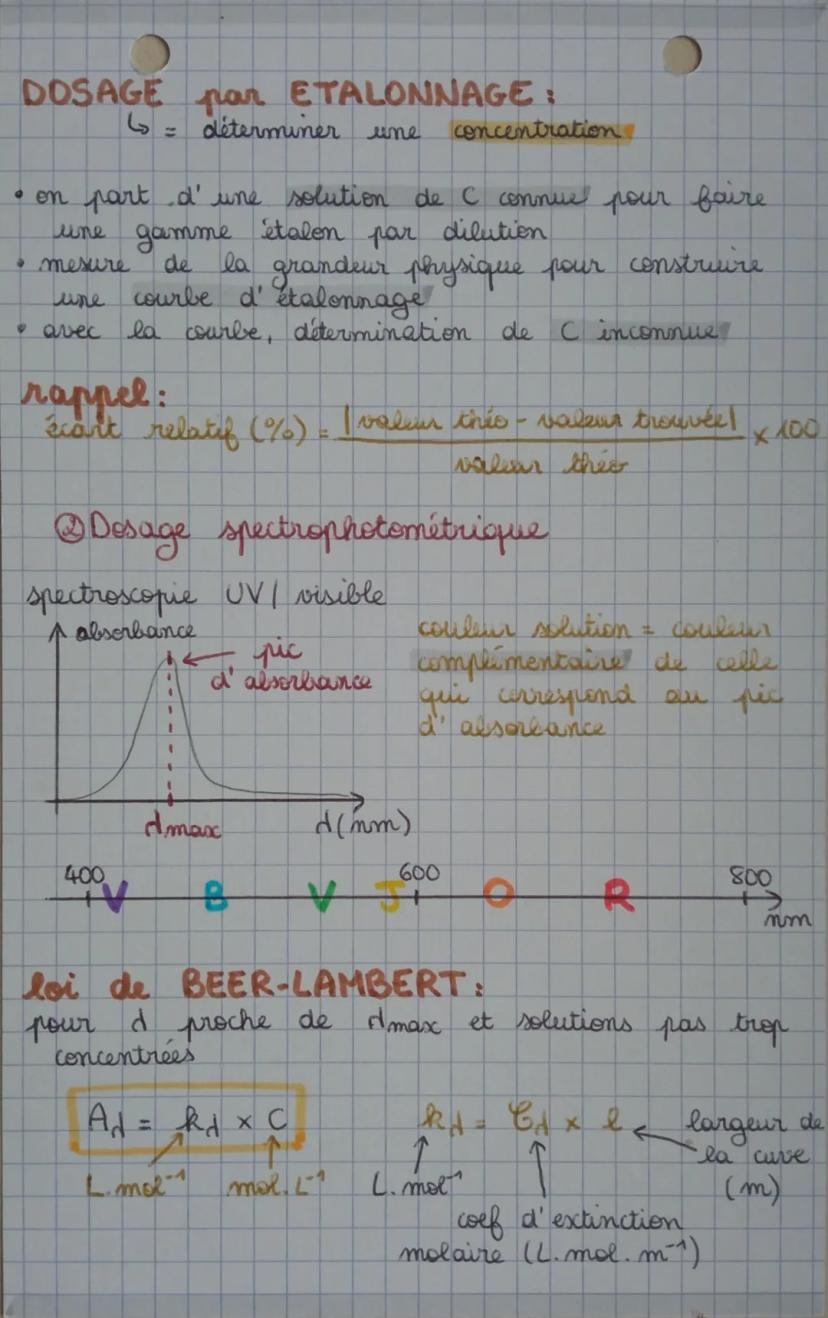 DOSAGE par ETALONNAGE :
↳ = déterminer une concentration
• on part d'une solution de C connue pour faire
une gamme étalon par dilution
• mesure de la grandeur physique pour construire
une courbe d'étalonnage
• avec la courbe, détermination de C inconnue
rappel :
écart relatif (%) = |valeur théo - valeur trouvée| / valeur théo × 100
② Dosage spectrophotométrique
spectroscopie UV / visible
absorbance
pic
d'absorbance
λmax
λ(nm)
couleur solution = couleur
complémentaire de celle
qui correspond au pic
d'absorbance
400 600 800
V B V J O R
nm
loi de BEER-LAMBERT :
pour λ proche de λmax et solutions pas trop
concentrées
Aλ = kλ × C
L.mol⁻¹ mol.L⁻¹
kλ = Ɛλ × l ← largeur de
la cuve
(m)
L.mol⁻¹
coef d'extinction
molaire (L.mol.m⁻¹)